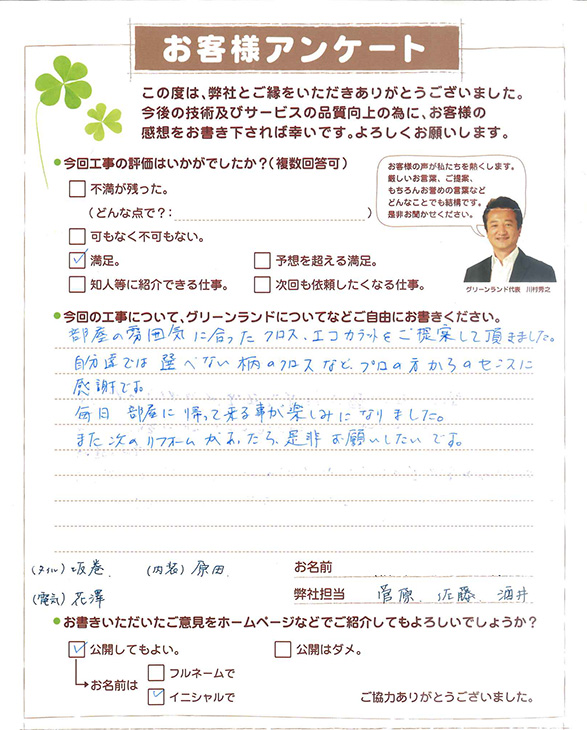 お客様アンケート
この度は、弊社とご縁をいただきありがとうございました。
今後の技術及びサービスの品質向上の為に、お客様の
感想をお書き下されば幸いです。よろしくお願いします。
今回工事の評価はいかがでしたか？（複数回答可）
不満が残った。
（どんな点で？：　）
可もなく不可もない。
満足。
予想を超える満足。
知人等に紹介できる仕事。
次回も依頼したくなる仕事。
お客様の声が私たちを熱くします。
厳しいお言葉、ご提案、
もちろんお誉めの言葉など
どんなことでも結構です。
是非お聞かせください。
グリーンランド代表　川村秀之
今回の工事について、グリーンランドについてなどご自由にお書きください。
部屋の雰囲気に合ったクロス、エコカラットをご提案して頂きました。
自分達では選べない柄のクロスなど、プロの方からのセンスに
感謝です。
毎日部屋に帰って来る事が楽しみになりました。
また次のリフォームがあったら、是非お願いしたいです。
(タイル) 坂巻　(内装) 原田
お名前
(電気) 花澤
弊社担当　菅原、佐藤、酒井
お書きいただいたご意見をホームページなどでご紹介してもよろしいでしょうか？
公開してもよい。
公開はダメ。
お名前は
フルネームで
イニシャルで
ご協力ありがとうございました。